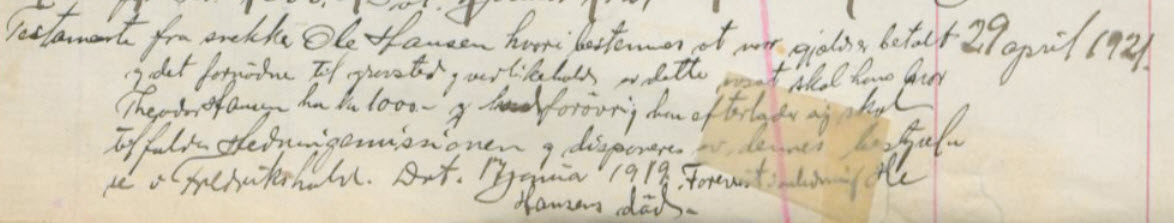 Testamente fra snekker Ole Hansen hvori bestemmes at naar gjelden er betalt 29 april 1921.
og det fornødne til gravsted og vedlikehold er dette skal hans bror
Theodor Hansen ha kr 1000.- og forövrig han efterlader sig skal
tilfalde Hedningemissionen og disponeres av dennes bestyrelse
i Fredrikshald. Dat. januar 1919. Forevist i anledning Ole
Hansens död.-